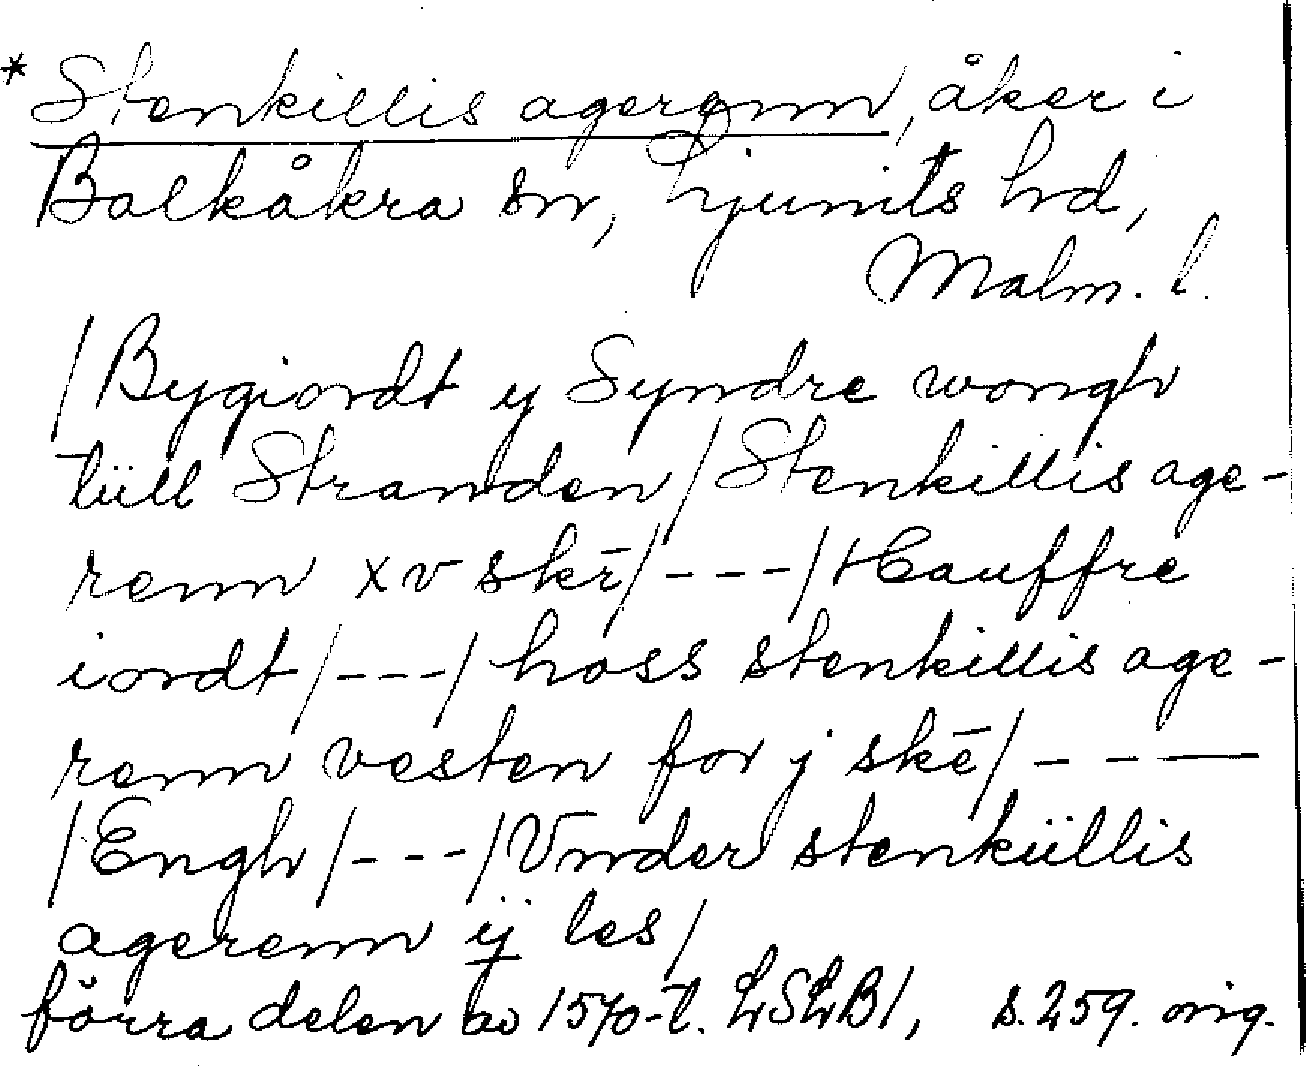 * Stenkillis agerenn, åker i
Balkåkra sn, Ljunits hd,
Malm. l.
/Bygiordt y Syndre wongh
tüll Stranden/Stenkillis age-
renn xv skē/---/Hauffre
iordt/---/hoss stenkillis age-
renn vesten for j skē/---
/Engh/---/Vnder stenküllis
agerenn ij les/
förra delen av 1570-t. LSLB1, s. 259. orig.